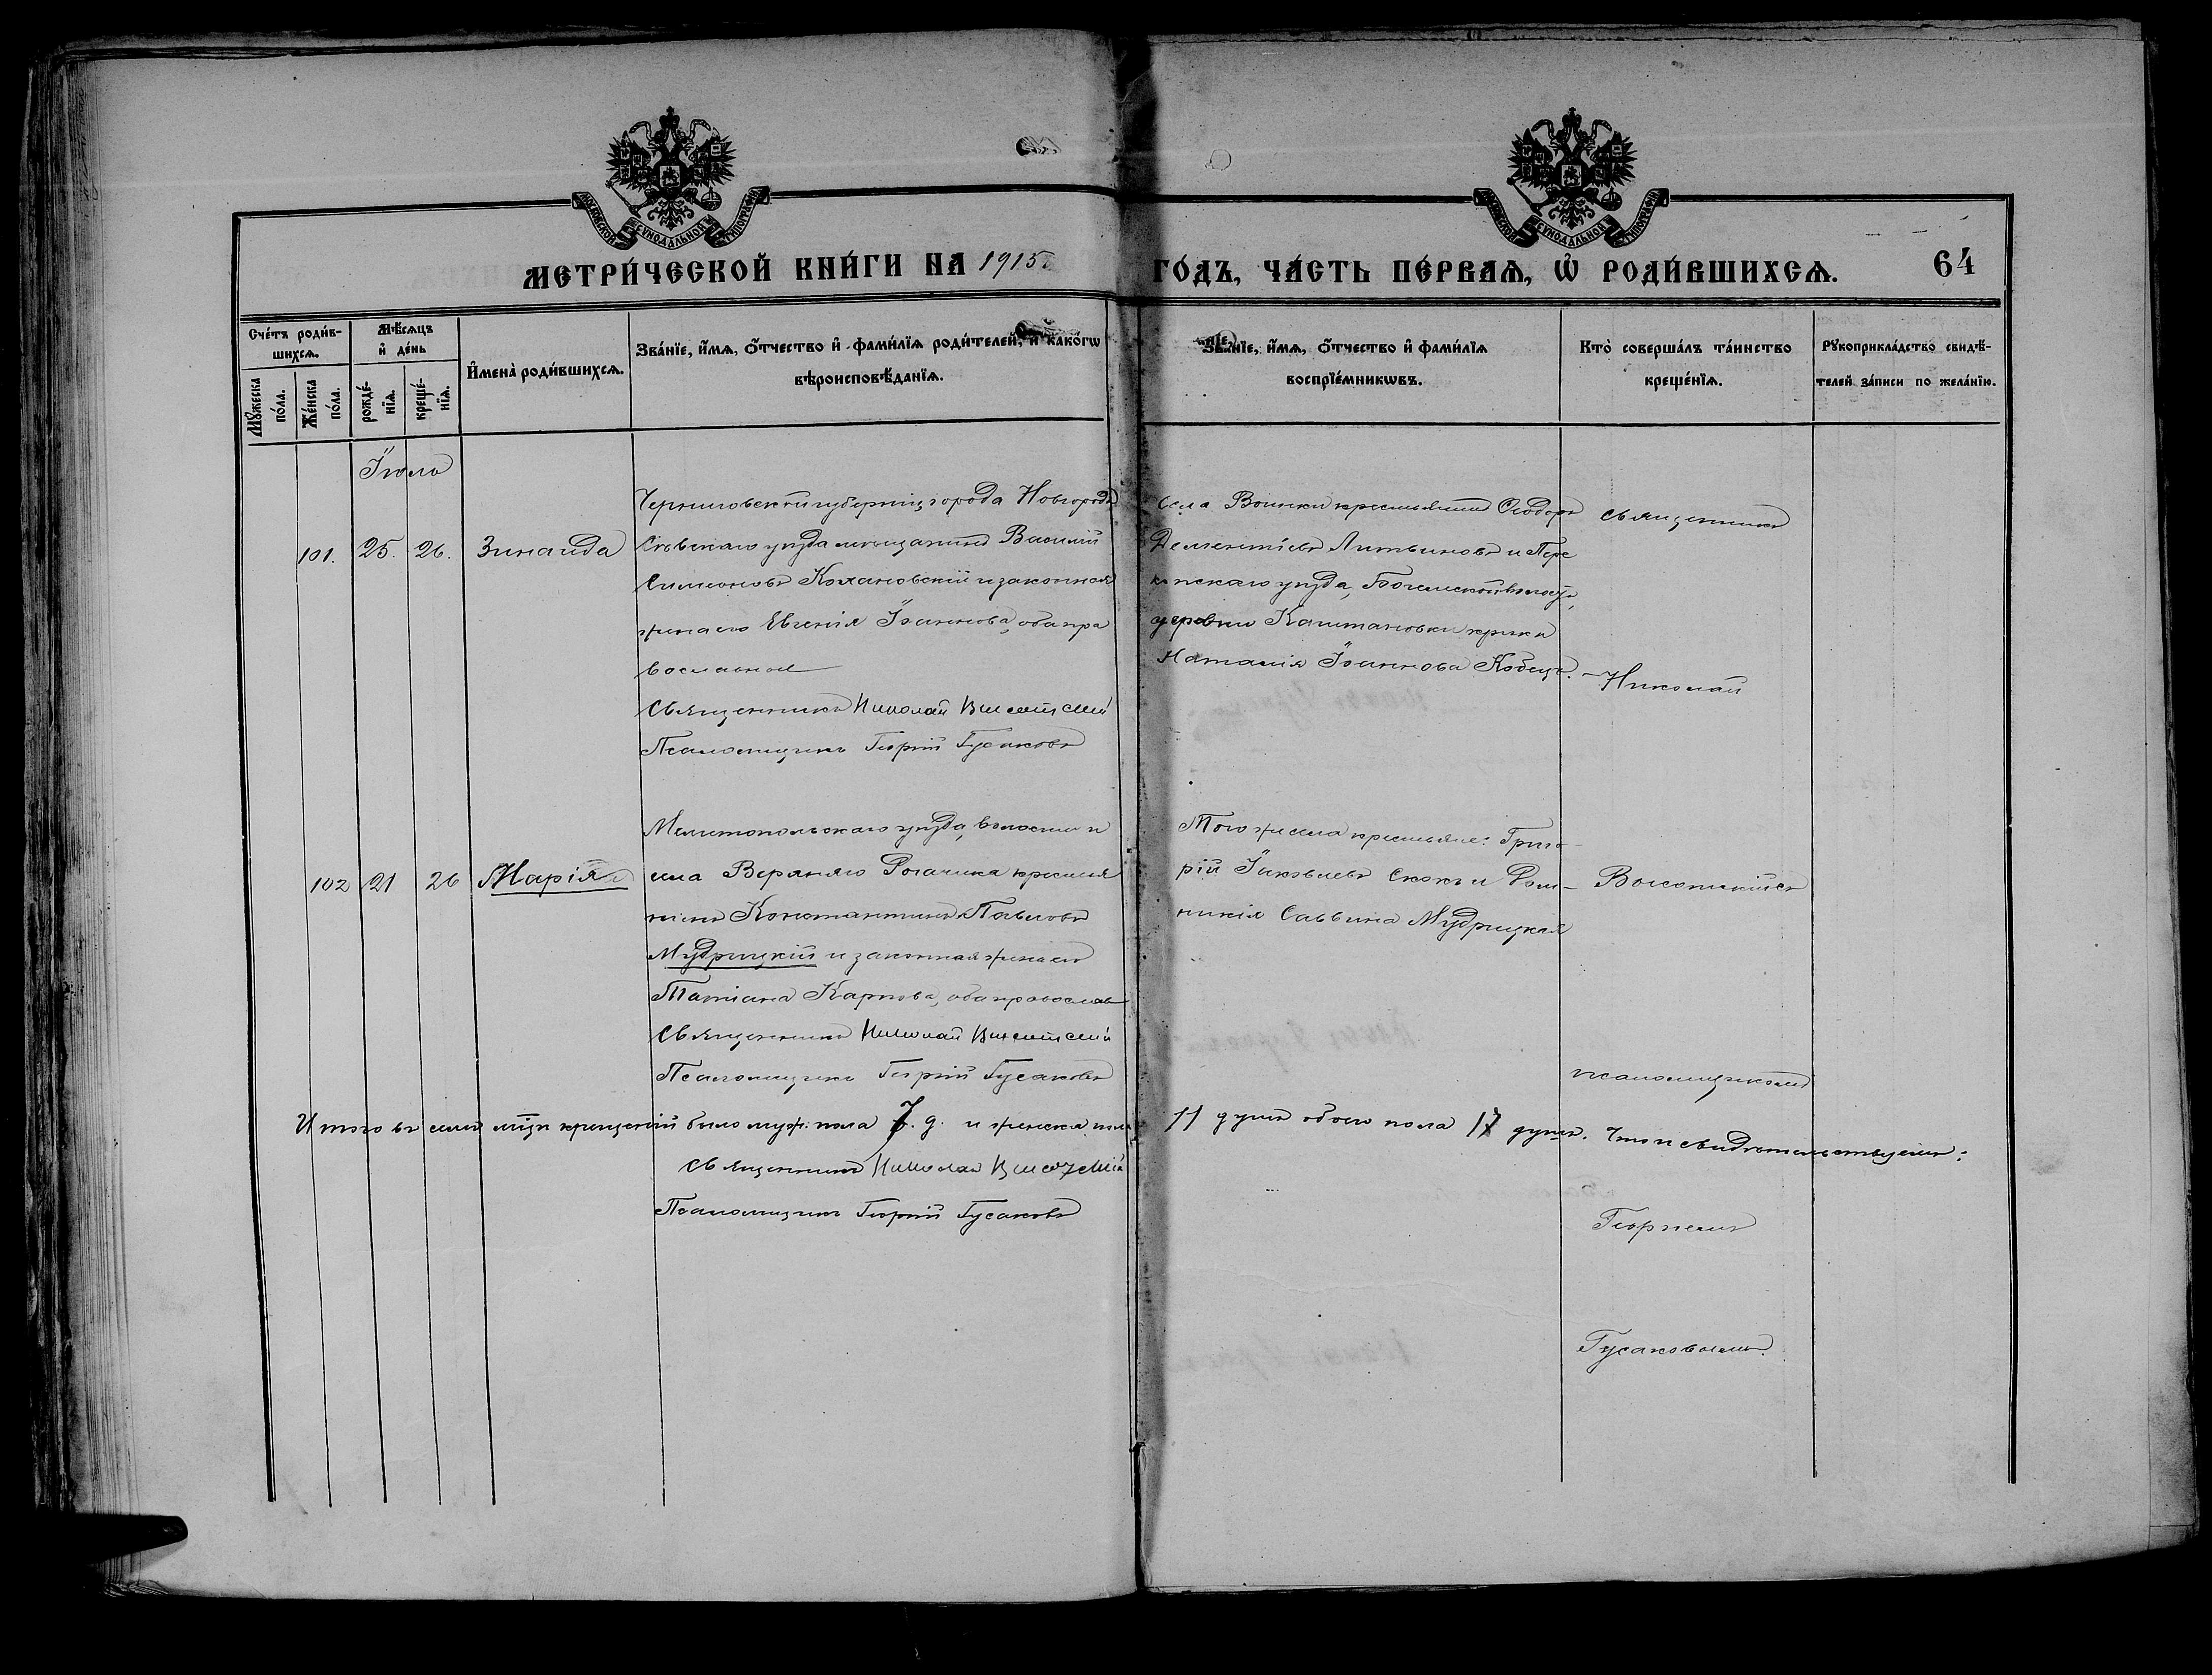 МОСКОВСКОЙ СѴНОДАЛЬНОЙ ТИПОГРАФІИ
МОСКОВСКОЙ СѴНОДАЛЬНОЙ ТИПОГРАФІИ
МЕТРИ́ЧЕСКОЙ КНИ́ГИ НА 1915
ГО́ДЪ, ЧА́СТЬ ПЕ́РВАѦ, Ѡ҆ РОДИ́ВШИХСѦ.
64
Сче́тъ роди́в-
шихсѧ.
Мꙋ́жеска
по́ла.
Же́нска
по́ла.
Мѣ́сѧцъ
и҆ де́нь
рожде́-
нїѧ.
креще́-
нїѧ.
И҆мена̀ роди́вшихсѧ.
Зва́нїе, и҆́мѧ, ѻ҆́тчество и҆ фами́лїѧ роди́телей, и҆ како́гѡ
вѣроисповѣ́данїѧ.
Зва́нїе, и҆́мѧ, ѻ҆́тчество и҆ фами́лїѧ
воспрїе́мникѡвъ.
Кто̀ соверша́лъ та́инство
креще́нїѧ.
Рꙋкоприкла́дство свидѣ́-
телей за́писи по жела́нїю.
Іюль
101.
25.
26.
Зинаида
Черниговской губерніи, города Новгородъ
Сѣверскаго уѣзда мѣщанинъ Василій
Симеоновъ Кохановскій и законная
жена его Евгенія Іоаннова, оба пра
вославные
Священникъ Николай Высотскій
Псаломщикъ Георгій Гусаковъ
Села Воинки крестьянинъ Ѳеодоръ
Дементіевъ Литвиновъ и Пере
копскаго уѣзда, Богемской волости,
деревни Каштановки кр-нка
Наталія Іоаннова Кобецъ.
Священникъ
Николай
102
21
26
Марія
Мелитопольскаго уѣзда, волости и
села Верхняго Рогачика крестья
нинъ Константинъ Павловъ
Мудрицкій и законная жена его
Татіана Карпова, оба православ
Священникъ Николай Высотскій
Псаломщикъ Георгій Гусаковъ
Того же села крестьяне: Григо
рій Іаковлевъ Скокъ и
Саввина Мудрицкая
Высотскій съ
псаломщикомъ
Георгіемъ
Гусаковымъ.
Итого въ семъ мцѣ крещеній было муж. пола 7. д. и женска пола
11 душъ обоего пола 17 душъ. Что и свидѣтельствуемъ:
Священникъ Николай Высотскій
Псаломщикъ Георгій Гусаковъ